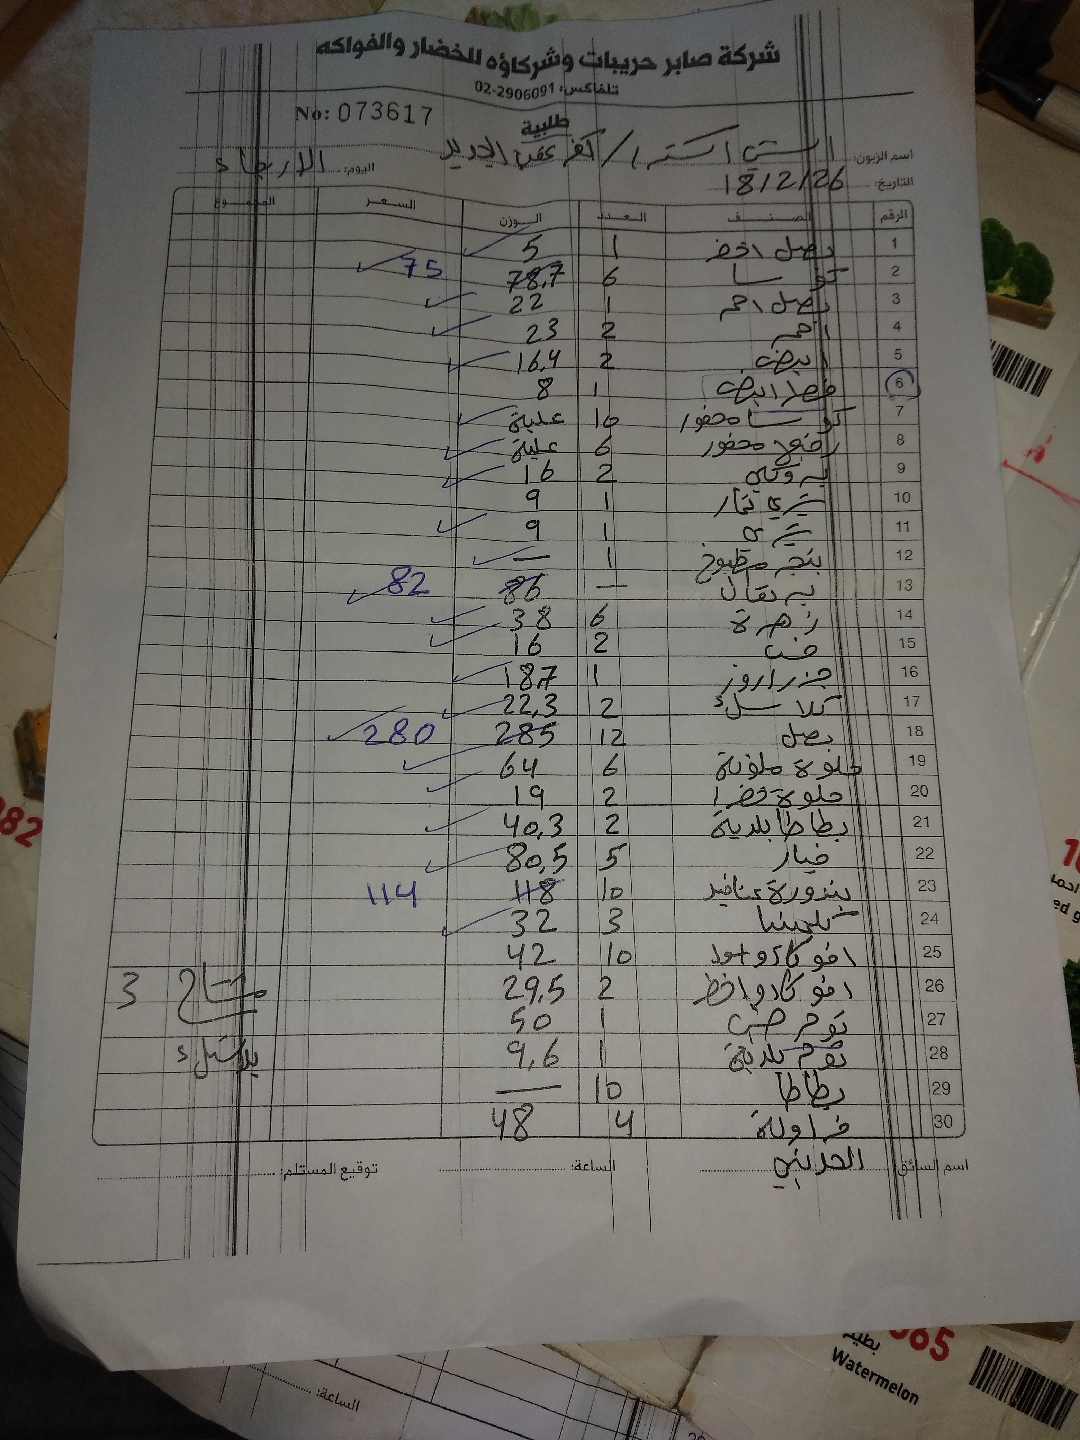 شركة صابر حريبات وشركاؤه للخضار والفواكه
تلفاكس: 02-2906091
No: 073617
طلبية
اسم الزبون: / كفر عقب الجديد اليوم: الاربعاء
التاريخ: 18/2/26
الرقم الصنف العدد الوزن السعر المجموع
1 بصل اخضر 1 5
2 كوسا 6 78,7 75
3 بصل احمر 1 22
4 احمر 2 23
5 ابيض 2 16,4
6 ابيض 1 8
7 كوسا محفور 10 علبة
8 محفور 6 علبة
9 2 16
10 1 9
11 1 9
12 مطبوخ 1 —
13 برتقال — 86 82
14 زهرة 6 38
15 خس 2 16
16 جزر اروز 1 18,7
17 2 22,3
18 بصل 12 285 280
19 حلوة ملونة 6 64
20 حلوة خضرا 2 19
21 بطاطا بلدية 2 40,3
22 خيار 5 80,5
23 بندورة عناقيد 10 118 114
24 كلمنتينا 3 32
25 افوكادو اسود 10 42
26 افوكادو اخضر 2 29,5 3
27 توم 1 50
28 توم بلدية 1 9,6
29 بطاطا 10 —
30 فراولة 4 48
اسم السائق: الساعة: توقيع المستلم:
الساعة:
Watermelon